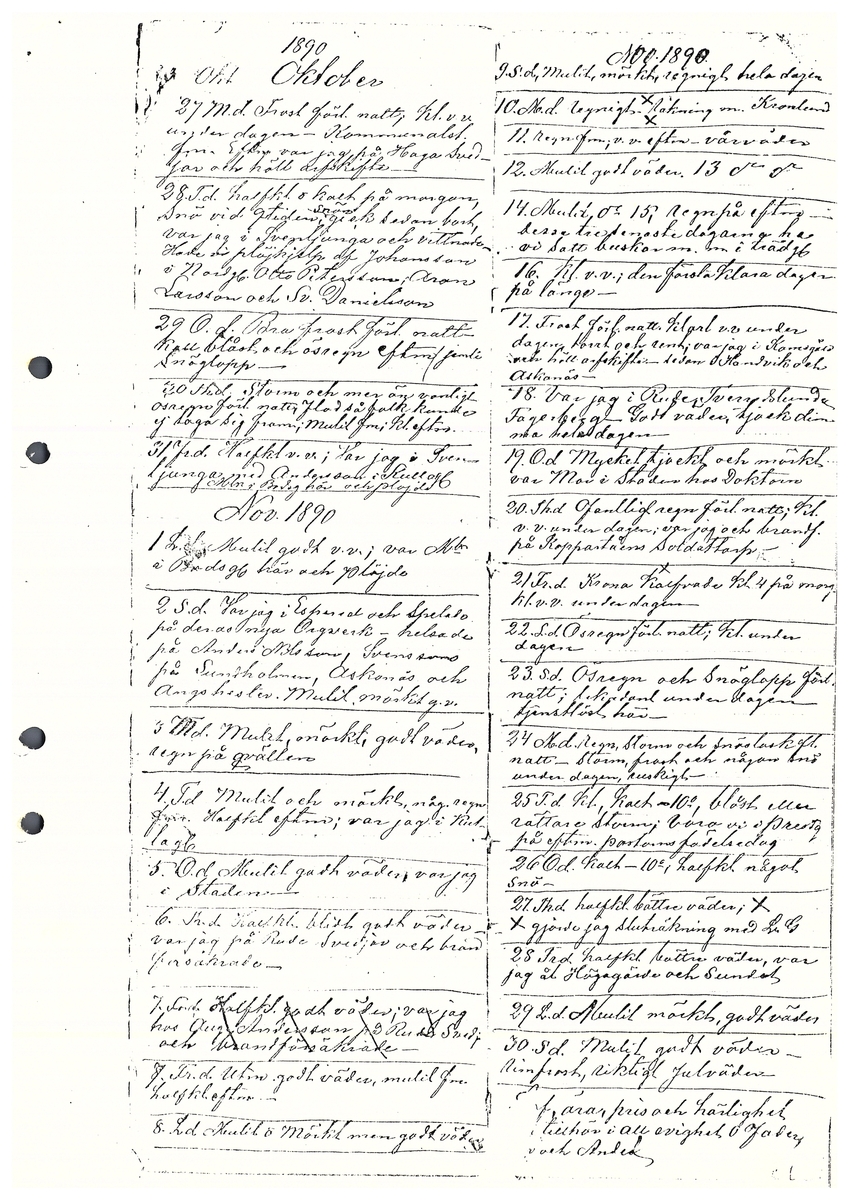 1890
Okt Oktober
27 M.d. Frost förl. natt, kl. v.v.
under dagen - Kommunalst.
fm. Eftm var jag på Haga Sved-
jor och höll arfskifte -
28 T.d. halfkl o kallt på morgon,
Snö vid Gliden, gick sedan bort,
var jag i Svenljunga och vittnade
Hade vi plöjhjelp af Johansson
i Nordg. Otto Petersson, Aron
Larsson och Sv. Danielsson
29 O.d. Bra frost förl. natt
kall blåst och ösregn eftm
Snöglopp -
30 Thd. Storm och mer än vanligt
ösregn förl. natt, flod så folk kunde
ej taga sig fram; mulit fm; kl. eftm.
31 Frd. Halfkl v.v.; Var jag i Sven-
ljunga med Andersson i Kullag
här och plöjde
Nov. 1890
1 L.d. Mulit godt v.v.; var
i här och plöjde
2 S.d. Var jag i Espered och Spelade
på deras nya Orgverk - helsade
på Anders Nilsson, Svenssons
på Sundholmen, Askonäs och
Ängshester. Mulit, mörkt g.v.
3 Md. Mulit, mörkt, godt väder,
regn på qvällen
4. T.d Mulit och mörkt, någ. regn
fm. Halfkl eftm; var jag i Kul-
lag
5. O.d Mulit godt väder, var jag
i Staden -
6. halfkl. blidt godt väder
var jag på Rude Svedjor och brand
försäkrade -
7. Halfkl godt väder; var jag
hos Aug. Andersson på Rude Svedj
och brandförsäkrade
7. Fr.d Utm. godt väder, mulit fm
halfkl eftm -
8. Ld Mulit o Mörkt men godt väder
Nov. 1890
9 S.d, Mulit, mörkt, regnigt, hela dagen
10. M.d. regnigt X räkning m. Kronlund
X
11. regn fm; v.v. eftm - vårväder
12. Mulit godt väder. 13 do do
14. Mulit, do 15; regn på eftm -
desse tre senaste dagarna ha
vi satt buskar m. m i trädg
16. kl. v.v.; den första klara dagen
på länge -
17. Frost förl. natt klart v.v under
dagen, torrt och rent, var jag i
och höll arfskifte - sedan o Handvik och
Askanäs -
18. Var jag i Rude, Sven
Fagerberg - Godt väder, tjock dim
ma hela dagen
19. O.d Mycket tjockt och mörkt
var Mor i Staden hos Doktorn
20. Thd Ofantligt regn förl. natt; kl
v.v. under dagen; var jag och brandf.
på Kopparåsens Soldattorp -
21 Fr.d Krona kalfvade kl. 4 på morg
kl. v.v. under dagen
22. Ld Ösregn förl. natt; kl. under
dagen
23. Sd. Ösregn och Snöglopp förl.
natt; likadant under dagen
tjenstlöst här -
24 M.d. regn, storm och snöslask förl.
natt - storm, frost och någon snö
under dagen, ruskigt -
25 T.d kl, kallt -10°, blåst eller
rättare Storm; Voro vi i Prestg
på eftm. pastorns födelsedag
26 O.d. kallt - 10°, halfkl något
snö -
27 Thd halfkl. bättre väder; X
X gjorde jag sluträkning med L. G
28 Frd. halfkl bättre väder, var
jag åt Högagärde och Sundet
29 L.d. Mulit mörkt, godt väder
30. Sd. Mulit, godt väder -
rimfrost, riktigt Julväder -
f, ära, pris och härlighet
tillhör i all evighet o Fader,
och Anden